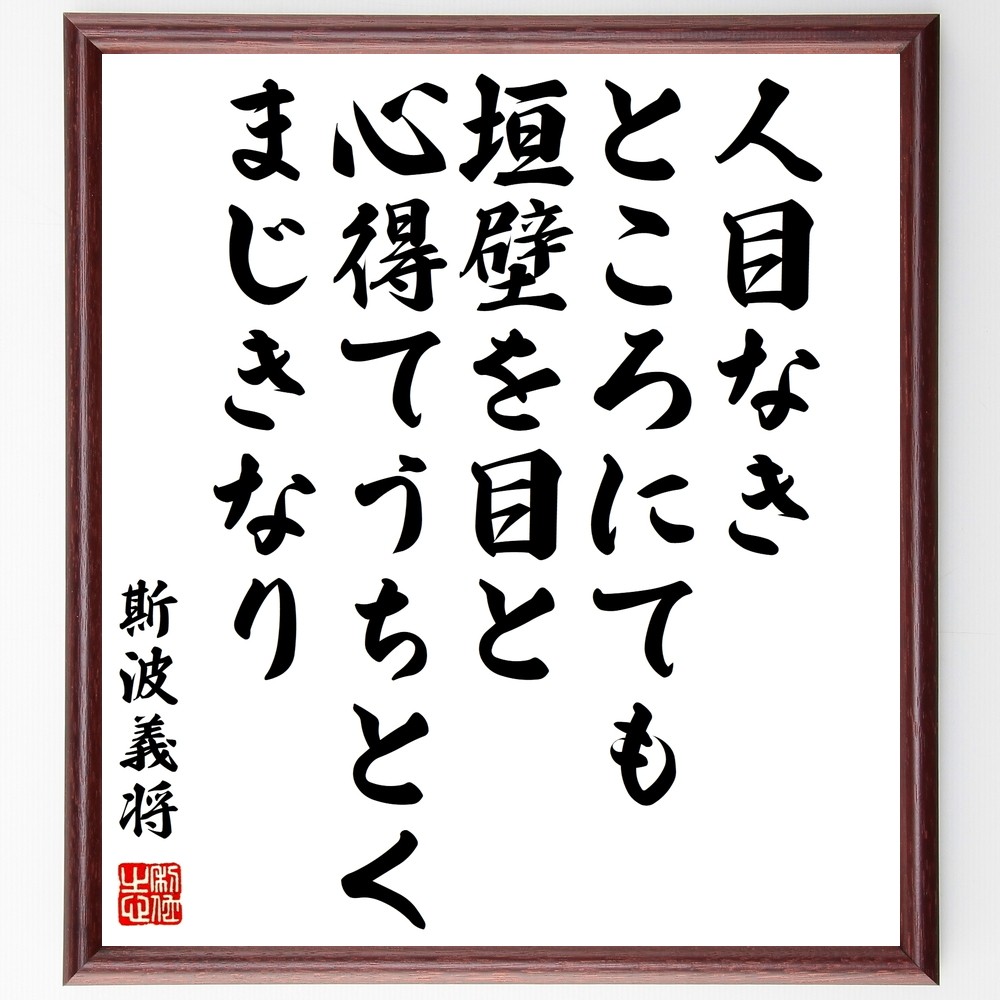 人目なき
ところにても
垣壁を目と
心得てうちとく
まじきなり
斯波義将